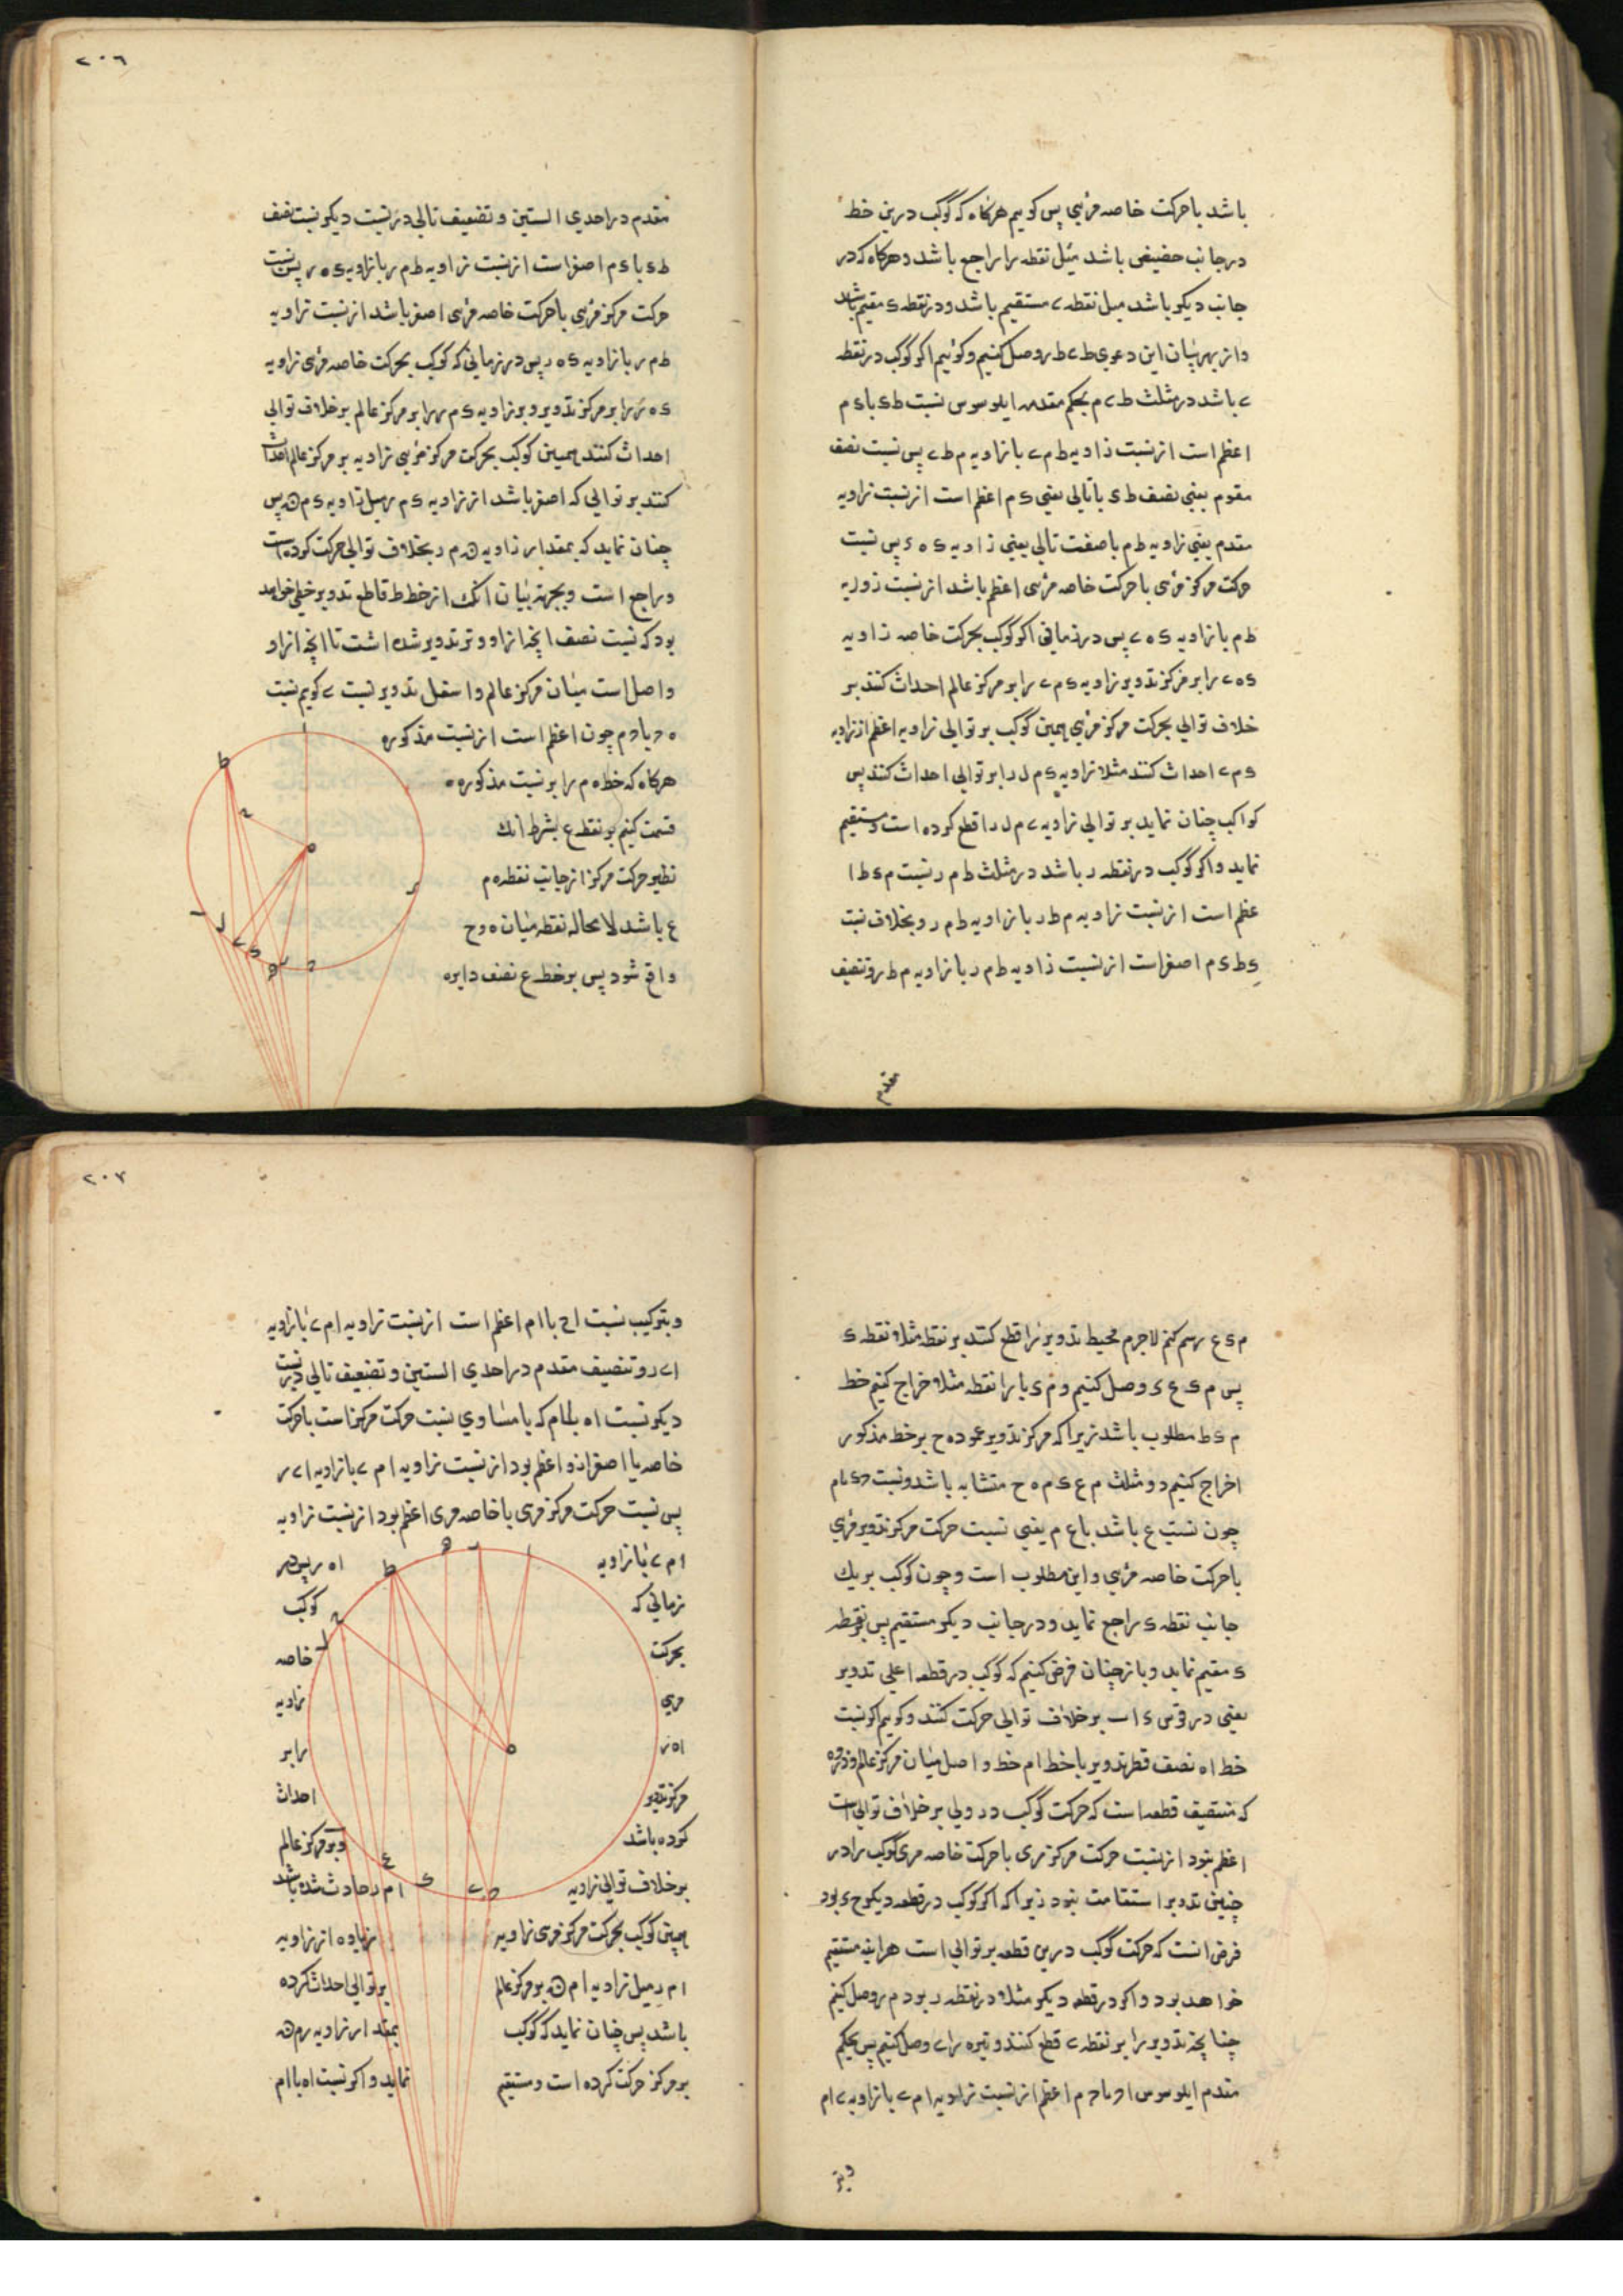 باشد با حرکت خاصه مرئی پس کوییم هرکاه که کوکب درین خط
در جانب حضیض باشد مثل نقطه را راجع باشد و هرکاه که در
جانب دیکر باشد میل نقطه ے مستقیم باشد و در نقطه ی مقیم باشد
و از بهر بیان این دعوی ط ے ط ر وصل کنیم و کوئیم اکر کوکب در نقطه
ے باشد در مثلث ط ے م بحکم مقدمه ایلوسوس نسبت ط ی با ی م
اعظم است از نسبت زاویه ط م ے با زاویه م ط ے پس نسبت نصف
مقوم یعنی نصف ط ی با تالی یعنی ی م اعظم است از نسبت زاویه
مقدم یعنی زاویه ط م با ضعف تالی یعنی زاویه ی ه ء پس نسبت
حرکت مرکز مرئی با حرکت خاصه مرئی اعظم باشد از نسبت زوایه
ط م با زاویه ی ه ے پس در زمانی اکر کوکب بحرکت خاصه زاویه
ی ه ے را بر مرکز تدویر زاویه ی م ے را بر مرکز عالم احداث کنند بر
خلاف توالی بحرکت مرکز مرئی همین کوکب بر توالی زاویه اعظم از زاویه
ی م ے احداث کند مثلا زاویه ی م ل را بر توالی احداث کند پس
کواکب چنان نماید بر توالی زاویه ے م ل را قطع کرده است و مستقیم
نماید و اکر کوکب در نقطه ر باشد در مثلث ط م ر نسبت م ی ط ا
عظم است از نسبت زاویه م ط ر با زاویه ط م ر و بخلاف نسبت
ی ط ی م اصغر است از نسبت زاویه ط م ر با زاویه م ط ر و تنصیف
مقدم
٢٠٦
مقدم در احدی الستین و تضعیف تالی در نسبت دیکر نسبت نصف
ط ی با ی م اصغر است از نسبت زاویه ط م ر با زاویه ی ه ر پس نسبت
حرکت مرکز مرئی با حرکت خاصه مرئی اصغر باشد از نسبت زاویه
ط م ر با زاویه ی ه ر پس در زمانی که کوکب بحرکت خاصه مرئی زاویه
ی ه ر را بر مرکز تدویر و بر زاویه ی م ر را بر مرکز عالم بر خلاف توالی
احداث کنند همین کوکب بحرکت مرکز مرئی زاویه بر مرکز عالم احداث
کند بر توالی که اصغر باشد از زاویه ی م ر میل زاویه ی م ۿ پس
چنان نماید که بمقدار زاویه ۿ م ر بخلاف توالی حرکت کرده است
و راجع است و بجهة بیان آنک از خطط قاطع تدویر خطی خواهد
بود که نسبت نصف آنچه از او وتر تدویر شده است تا آنچه از او
واصل است میان مرکز عالم و اسفل تدویر نسبت ے کویم نسبت
ه د با د م چون اعظم است از نسبت مذکوره
هرکاه که خط ه م را بر نسبت مذکوره
قسمت کنیم بر نقطه ع بشرط آنک
نظیر حرکت مرکز از جانب نقطه م
ع باشد لا محاله نقطه میان ه و ح
واقع شود پس بر خط ع نصف دایره
م ی ع رسم کنم لاجرم محیط تدویر را قطع کند بر نقطه مثلا نقطه ی
پس م ی ع ی وصل کنیم و م ی با را نقطه مثلا خراج کنیم خط
م ی ط مطلوب باشد زیرا که مرکز تدویر عود ه ح بر خط مذکور
اخراج کنیم دو مثلث م ع ی م ه ح متشابه باشد و نسبت ح ی با م
چون نسبت ع باشد با ع م یعنی نسبت حرکت مرکز تدویر مرئی
با حرکت خاصه مرئی و این مطلوب است و چون کوکب بر یک
جانب نقطه ی راجع نماید و در جانب دیکر مستقیم پس بر نقطه
ی مقیم نماید و باز چنان فرض کنیم که کوکب در قطعه اعلی تدویر
یعنی در قوس ی ا ب بر خلاف توالی حرکت کند و کویم اکر نسبت
خط ا ه نصف قطر تدویر با خط ا م خط واصل میان مرکز عالم و ذروه
که منتصف قطعه است که حرکت کوکب در ولی بر خلاف توالی است
اعظم نبود از نسبت حرکت مرکز مری با حرکت خاصه مری کوکب را در
چنین تدویر استقامت نبود زیرا که اکر کوکب در قطعه دیکر ح ی بود
فرض انست که حرکت کوکب درین قطعه بر توالی است هراینه مستقیم
خواهد بود و اکر در قطعه دیکر مثلا در نقطه ر بود م ر وصل کنیم
چنانچه تدویر را بر نقطه ے قطع کند و تیره را ے وصل کنیم پس بحکم
مقدم ایلوسوس ا ر با ر م اعظم از نسبت زاویه ا م ے با زاویه ے ا م
و بتر
٢٠٧
و بترکیب نسبت ا ح با ا م اعظم است از نسبت زاویه ا م ے با زاویه
ا ے ر و تنصیف مقدم در احدی الستین و تضعیف تالی در نسبت
دیکر نسبت ا ه با ا م که یا مساوی نسبت حرکت مرکز است با حرکت
خاصه یا اصغر از و اعظم بود از نسبت زاویه ا م ے با زاویه ا ے ر
پس نسبت حرکت مرکز مری با خاصه مری اعظم بود از نسبت زاویه
ا م ے با زاویه ا ه ر پس در
زمانی که کوکب
بحرکت خاصه
مری زاویه
ا ه ر را بر
مرکز تدویر احداث
کرده باشد و بر مرکز عالم
بر خلاف توالی زاویه ا م ر حادث شده باشد
همین کوکب بحرکت مرکز مری زاویه زیاده از زاویه
ا م ر میل زاویه ا م ۿ بر مرکز عالم بر توالی احداث کرده
باشد پس چنان نماید که کوکب بمقدار زاویه ر م ۿ
بر مرکز حرکت کرده است و مستقیم نماید و اکر نسبت ا ه با ا م